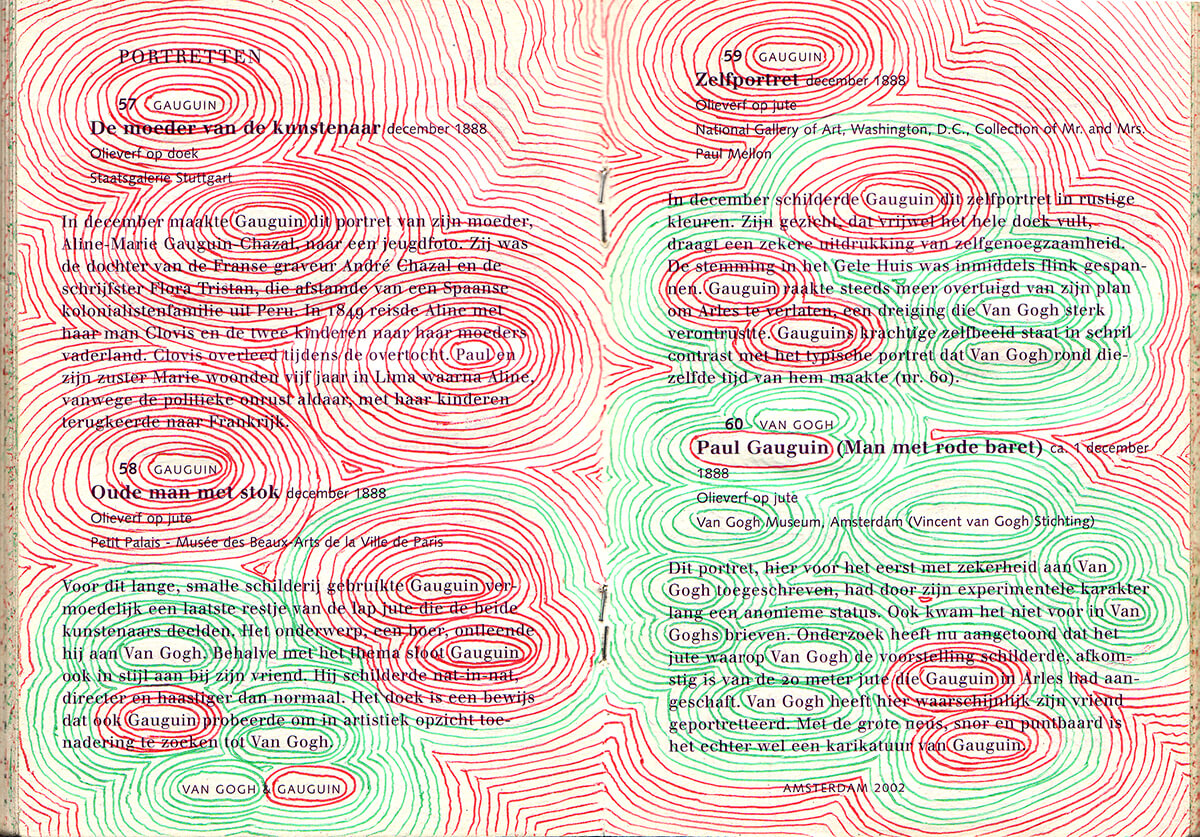 PORTRETTEN
57 GAUGUIN
De moeder van de kunstenaar december 1888
Olieverf op doek
Staatsgalerie Stuttgart
In december maakte Gauguin dit portret van zijn moeder,
Aline-Marie Gauguin-Chazal, naar een jeugdfoto. Zij was
de dochter van de Franse graveur André Chazal en de
schrijfster Flora Tristan, die afstamde van een Spaanse
kolonialistenfamilie uit Peru. In 1849 reisde Aline met
haar man Clovis en de twee kinderen naar haar moeders
vaderland. Clovis overleed tijdens de overtocht. Paul en
zijn zuster Marie woonden vijf jaar in Lima waarna Aline,
vanwege de politieke onrust aldaar, met haar kinderen
terugkeerde naar Frankrijk.
58 GAUGUIN
Oude man met stok december 1888
Olieverf op jute
Petit Palais - Musée des Beaux-Arts de la Ville de Paris
Voor dit lange, smalle schilderij gebruikte Gauguin ver-
moedelijk een laatste restje van de lap jute die de beide
kunstenaars deelden. Het onderwerp, een boer, ontleende
hij aan Van Gogh. Behalve met het thema sloot Gauguin
ook in stijl aan bij zijn vriend. Hij schilderde nat-in-nat,
directer en haastiger dan normaal. Het doek is een bewijs
dat ook Gauguin probeerde om in artistiek opzicht toe-
nadering te zoeken tot Van Gogh.
VAN GOGH & GAUGUIN
59 GAUGUIN
Zelfportret december 1888
Olieverf op jute
National Gallery of Art, Washington, D.C., Collection of Mr. and Mrs.
Paul Mellon
In december schilderde Gauguin dit zelfportret in rustige
kleuren. Zijn gezicht, dat vrijwel het hele doek vult,
draagt een zekere uitdrukking van zelfgenoegzaamheid.
De stemming in het Gele Huis was inmiddels flink gespan-
nen. Gauguin raakte steeds meer overtuigd van zijn plan
om Arles te verlaten, een dreiging die Van Gogh sterk
verontrustte. Gauguins krachtige zelfbeeld staat in schril
contrast met het typische portret dat Van Gogh rond die-
zelfde tijd van hem maakte (nr. 60).
60 VAN GOGH
Paul Gauguin (Man met rode baret) ca. 1 december
1888
Olieverf op jute
Van Gogh Museum, Amsterdam (Vincent van Gogh Stichting)
Dit portret, hier voor het eerst met zekerheid aan Van
Gogh toegeschreven, had door zijn experimentele karakter
lang een anonieme status. Ook kwam het niet voor in Van
Goghs brieven. Onderzoek heeft nu aangetoond dat het
jute waarop Van Gogh de voorstelling schilderde, afkom-
stig is van de 20 meter jute die Gauguin in Arles had aan-
geschaft. Van Gogh heeft hier waarschijnlijk zijn vriend
geportretteerd. Met de grote neus, snor en puntbaard is
het echter wel een karikatuur van Gauguin.
AMSTERDAM 2002